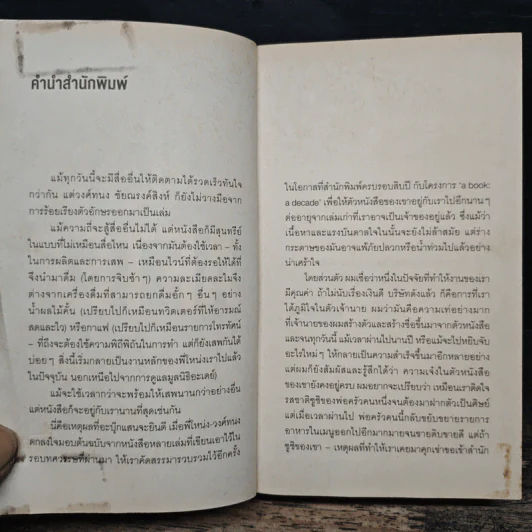 คำนำสำนักพิมพ์
แม้ทุกวันนี้จะมีสื่ออื่นให้ติดตามได้รวดเร็วทันใจ
กว่ากัน แต่วงศ์ทนง ชัยณรงค์สิงห์ ก็ยังไม่วางมือจาก
การร้อยเรียงตัวอักษรออกมาเป็นเล่ม
แม้ความถี่จะสู้สื่ออื่นไม่ได้ แต่หนังสือก็มีสุนทรีย์
ในแบบที่ไม่เหมือนสื่อไหน เนื่องจากมันต้องใช้เวลา – ทั้ง
ในการผลิตและการเสพ – เหมือนไวน์ที่ต้องรอให้ได้ที่
จึงนำมาดื่ม (โดยการจิบช้าๆ) ความละเมียดละไมจึง
ต่างจากเครื่องดื่มที่สามารถยกดื่มอึกๆ อื่นๆ อย่าง
น้ำผลไม้คั้น (เปรียบไปก็เหมือนทวิตเตอร์ที่ให้อารมณ์
สดและไว) หรือกาแฟ (เปรียบไปก็เหมือนรายการโทรทัศน์
– ที่ถึงจะต้องใช้ความพิถีพิถันในการทำ แต่ก็ยังเสพกันได้
บ่อยๆ สิ่งนี้เริ่มกลายเป็นงานหลักของพี่โหน่งเราไปแล้ว
ในปัจจุบัน นอกเหนือไปจากการดูแลมูลนิธิอะเดย์)
และใช้เวลากว่าจะพร้อมให้เสพนานกว่าอย่างอื่น
แต่หนังสือก็จะอยู่กับเรานานที่สุดเช่นกัน
นี่คือเหตุผลที่อะบุ๊กแสนจะยินดี เมื่อพี่โหน่ง-วงศ์ทนง
ตกลงใจมอบต้นฉบับจากหนังสือหลายเล่มที่เขียนเอาไว้ใน
รอบทศวรรษที่ผ่านมา ให้เราคัดสรรมารวบรวมไว้อีกครั้ง
ในโอกาสที่สำนักพิมพ์ครบรอบสิบปี กับโครงการ 'a book:
a decade' เพื่อให้ตัวหนังสือของเขาอยู่กับเราไปอีกนานๆ
ต่ออายุจากเล่มเก่าที่เราอาจเป็นเจ้าของอยู่แล้ว ซึ่งแม้ว่า
เนื้อหาและแรงบันดาลใจในนั้นจะยังไม่ล้าสมัย แต่ร่าง
กระดาษของมันอาจแพ้ภัยปลวกหรือน้ำท่วมไปแล้วอย่าง
น่าเศร้าใจ
โดยส่วนตัว ผมเชื่อว่าหนึ่งในปัจจัยที่ทำให้งานของเรา
มีคุณค่า ถ้าไม่นับเรื่องเงินดี บริษัทดังแล้ว ก็คือการที่เรา
ได้ภูมิใจในตัวเจ้านาย ผมว่ามันคือความเท่อย่างมาก
ที่เจ้านายของผมสร้างตัวและสร้างชื่อขึ้นมาจากตัวหนังสือ
และจนทุกวันนี้ แม้เวลาผ่านไปนานปี หรือแม้จะไปหยิบจับ
อะไรใหม่ๆ ให้กลายเป็นความสำเร็จขึ้นมาอีกหลายอย่าง
แต่ผมก็ยังสัมผัสและรู้สึกได้ว่า ความเจ๋งในตัวหนังสือ
ของเขายังคงอยู่ครบ ผมอยากจะเปรียบว่า เหมือนเราติดใจ
รสชาติซูชิของพ่อครัวคนหนึ่งจนต้องมาฝากตัวเป็นศิษย์
แต่เมื่อเวลาผ่านไป พ่อครัวคนนี้กลับขยับขยายรายการ
อาหารในเมนูออกไปอีกมากมายจนขายดิบขายดี แต่ถ้า
ซูชิของเขา – เหตุผลที่ทำให้เราเคยมาคุกเข่าขอเข้าสำนัก